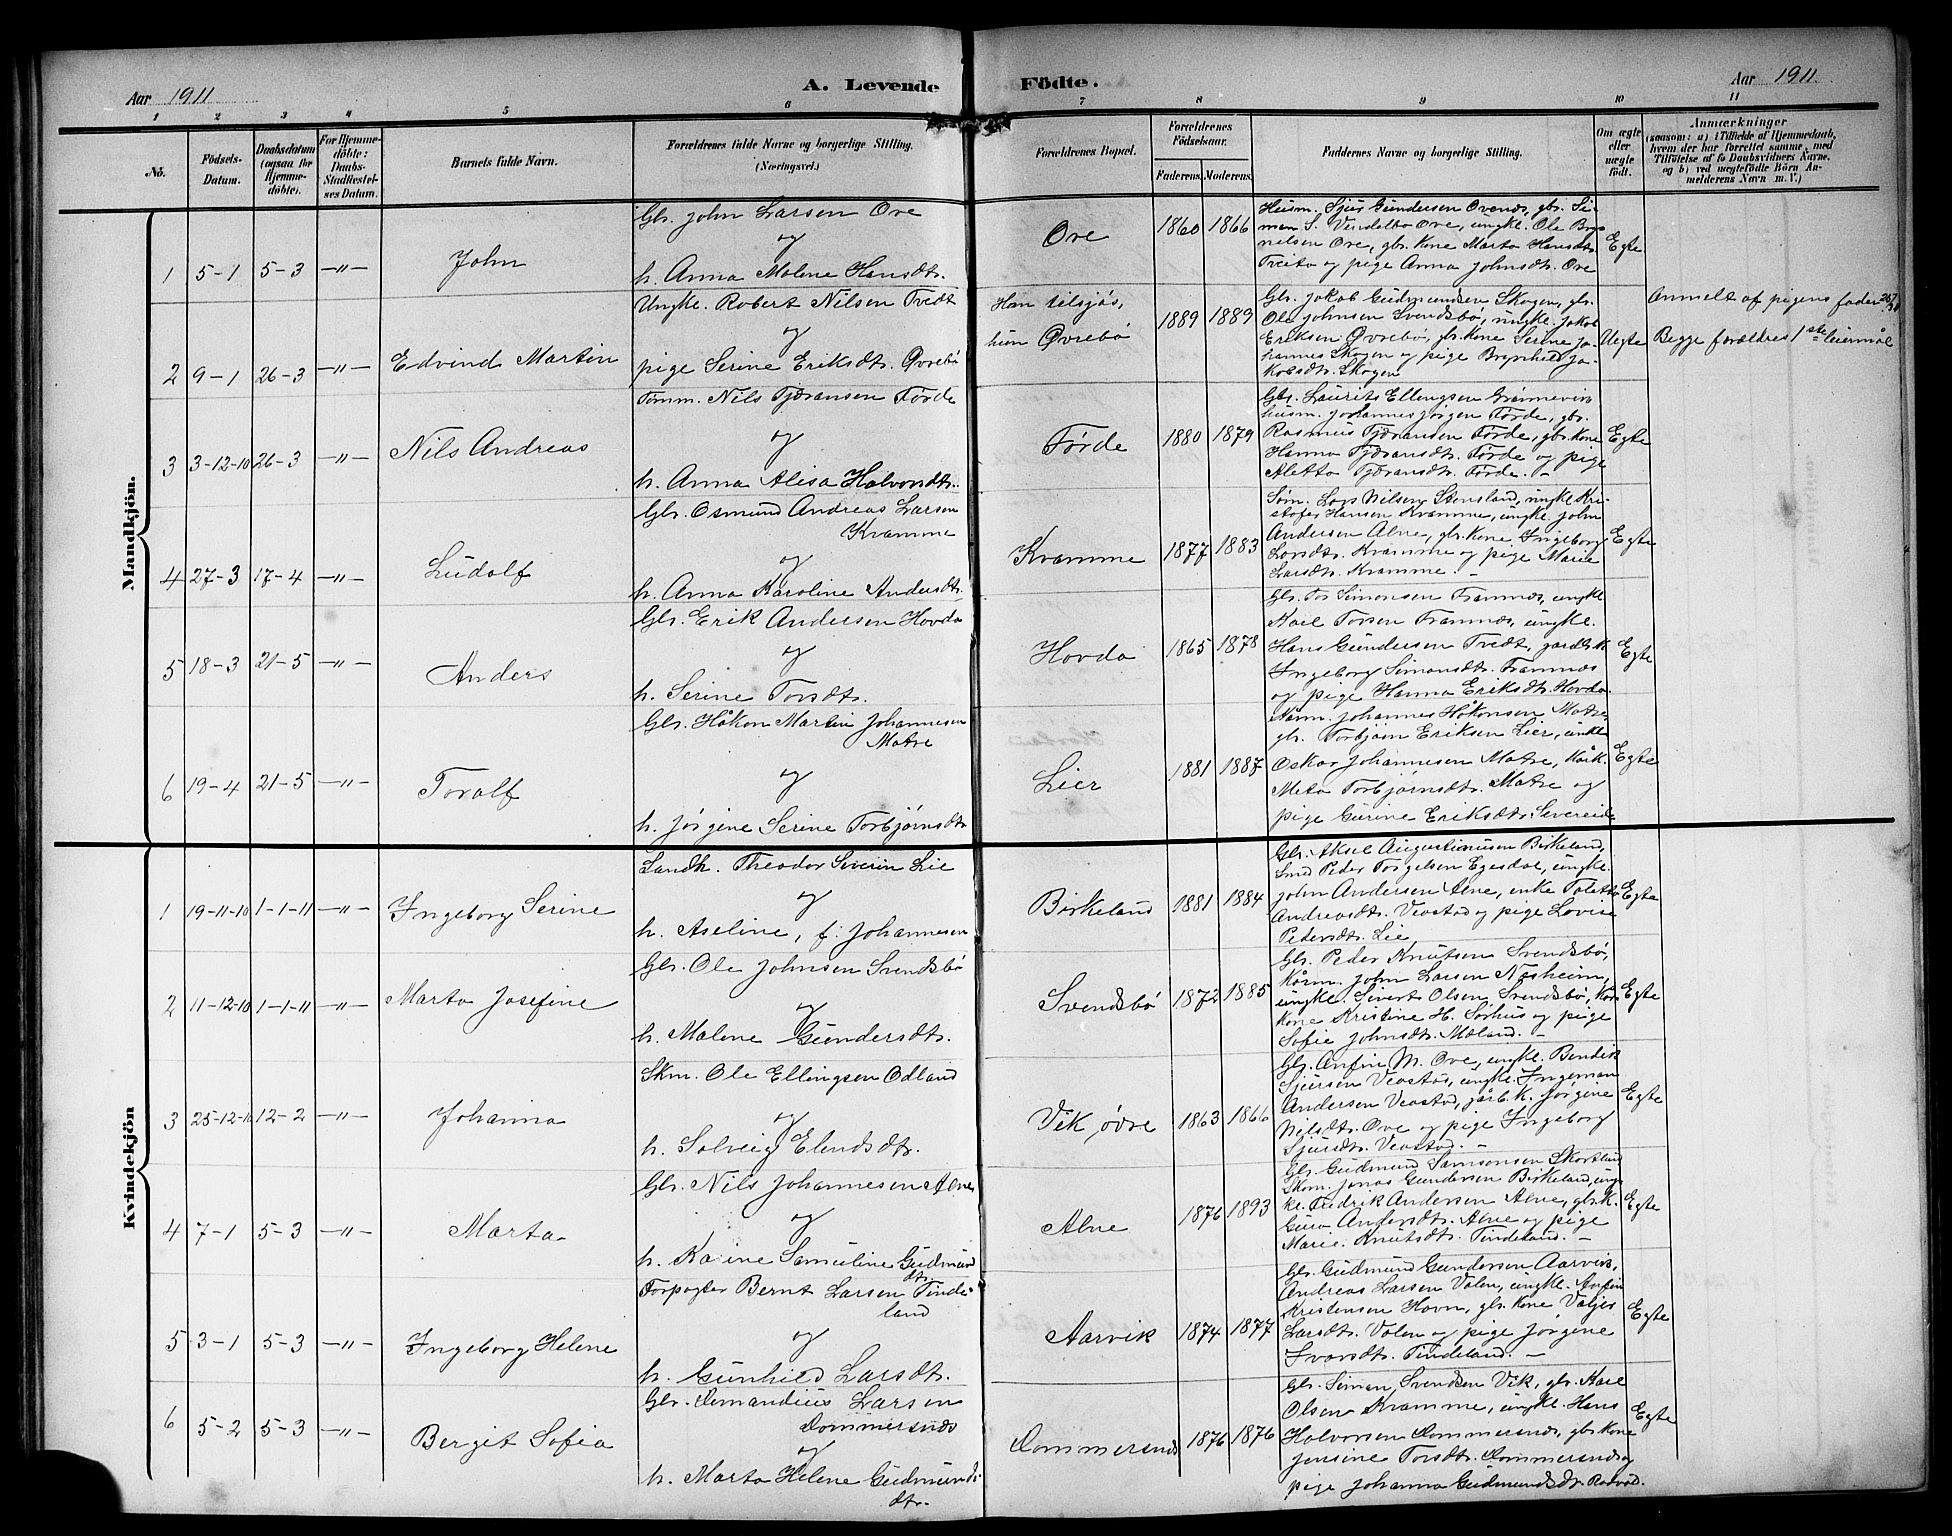 Aar 1911
A. Levende Födte.
Aar 1911.
1 2 3 4 5 6 7 8 9 10 11
No.
Födsels-Datum.
Daabsdatum (ogsaa for Hjemmedöbte).
For Hjemmedöbte: Daabs-Stadfæstelses Datum.
Barnets fulde Navn.
Forældrenes fulde Navne og borgerlige Stilling. (Næringsvei.)
Forældrenes Bopæl.
Forældrenes Födselsaar.
Faderens. Moderens.
Faddernes Navne og borgerlige Stilling.
Om ægte eller uægte födt.
Anmærkninger
(saasom: a) i Tilfælde af Hjemmedaab, hvem der har forrettet samme, med Tilföielse af to Daabsvidners Navne, og b) ved uægtefödte Börn Anmelderens Navn m. V.)
Mandkjön.
1 5-1 5-3 -"- John
Gbr. John Larsen Ove
og
h. Anna Malene Hansdtr.
Ove 1860 1866
Husm. Sjur Gundersen Ovenes, gbr. Si-
man S. Vendelbo Ove, ungk. Ole Bry-
nelsen Ove, gbr. kone Marta Hansdtr.
Tveita og pige Anna Johnsdtr. Ove
Egte
2 9-1 26-3 -"- Edvind Martin
Ungk. Robert Nilsen Tvedt
og
pige Serine Eriksdtr. Øvrebø
Han Eilsjøs,
hun Øvrebø
1889 1889
Gbr. Jakob Gudmundsen Skogen, gbr.
Ole Johnsen Svendsbø, ungk. Jakob
Eriksen Øvrebø, gbr. kone Serine Jo-
hannes Skogen og pige Brynhild Ja-
kobsdtr. Skogen
Uegte
Anmelt af pigens fader
Begge forældres 1ste leiermål
3 3-12-10 26-3 -"- Nils Andreas
Tømm. Nils Tjøransen Førde
og
h. Anna Alisa Halvorsdtr.
Førde 1880 1879
Gbr. Laurits Ellingsen Grønnevik
husm. Johannes Jörgen Førde, gbr.
Rasmus Tjøransen Førde, gbr. kone
Hanna Tjøransdtr. Førde og pige
Aletta Tjøransdtr. Førde. -
Egte
4 27-3 17-4 -"- Ludolf
Gbr. Osmund Andreas Larsen
Kramme
og
h. Anna Karoline Andersdtr.
Kramme 1877 1883
Søm. Lars Nilsen Stensland, ungk. Kri-
stofer Hansen Kramme, ungk. John
Andersen Alne, gbr. kone Ingeborg
Larsdtr. Kramme og pige Marie
Larsdtr. Kramme. -
Egte
5 18-3 21-5 -"- Anders
Gbr. Erik Andersen Hovda
og
h. Serine Torsdtr.
Hovda 1865 1878
Gbr. Tor Simonsen Framnes, ungk.
Karl Torsen Framnes, ungk.
Hans Gundersen Tvedt, gardbk.
Ingeborg Simonsdtr. Framnes
og pige Hanna Eriksdtr. Hovda.
Egte
6 19-4 21-5 -"- Toralf
Gbr. Håkon Martin Johannesen
Matre
og
h. Jørgine Serine Torbjørnsdtr
Lier 1881 1887
Kårm. Johannes Håkonsen Matre,
gbr. Torbjørn Eriksen Lier, ungk.
Oskar Johannesen Matre, kårk.
Meta Torbjørnsdtr. Matre og
pige Gurine Eriksdtr. Severeide
Egte
Kvindekjön
1 19-11-10 1-1-11 -"- Ingeborg Serine
Landh. Theodor Severin Lie
og
h. Aseline, f: Johannesen
Birkeland 1881 1884
Gbr. Aksel Augustinusen Birkeland,
Smed Peder Torgelsen Egesdal, ungk.
John Andersen Alne, enke Toletta
Andreasdtr. Veastad og pige Lovise
Pedersdtr. Lie
Egte
2 11-12-10 1-1-11 -"- Marta Josefine
Gbr. Ole Johnsen Svendsbø
og
h. Malene Gundersdtr.
Svendsbø 1872 1885
Gbr. Peder Knutsen Svendsbø,
Kårm. John Larsen Nesheim,
ungk. Sivert Olsen Svendsbø, kår-
kone Kristine H. Sørhus og pige
Sofie Johnsdtr. Mæland. -
Egte
3 25-12-10 12-2 -"- Johanna
Skm. Ole Ellingsen Odland
og
h. Solveig Elendsdtr.
Vik, øvre 1863 1866
Gbr. Anfin M. Ove, ungk. Bendik
Sjursen Veastad, ungk. Ingeman
Andersen Veastad, gårbk. Jørgine
Nilsdtr. Ove og pige Ingeborg
Sjursdtr. Veastad. -
Egte
4 7-1 5-3 -"- Marta
Gbr. Nils Johannesen Alne
og
h. Karine Samueline Gudmunds
dtr.
Alne 1876 1893
Gbr. Gudmund Samsonsen Skartland
Skom. Jonas Gundersen Birkeland, ung-
k. Fredrik Andersen Alne, gbr. k.
Guro Andersdtr. Alne og pige
Marie Knutsdtr. Tindeland. -
Egte
5 3-1 5-3 -"- Ingeborg Helene
Forpagter Bernt Larsen Tinde-
land
og
h. Gunhild Larsdtr.
Aarvik 1874 1877
Gbr. Gudmund Gundersen Aarvik,
Andreas Larsen Valen, ungk. Anfin
Kristensen Hovn, gbr. kone Valjer
Larsdtr. Valen og pige Jørgine
Ivarsdtr. Tindeland. -
Egte
6 5-2 5-3 -"- Bergit Sofia
Gbr. Amandius Larsen
Dommersnes
og
h. Marta Helene Gudmunds-
dtr.
Dommersnes 1876 1876
Gbr. Siman Svendsen Vik, gbr. Karl
Olsen Kramme, ungk. Hans
Halvorsen Dommersnes, gbr. kone
Jensine Torsdtr. Dommersnes og
pige Johanna Gudmundsdtr. Rødvad.
Egte